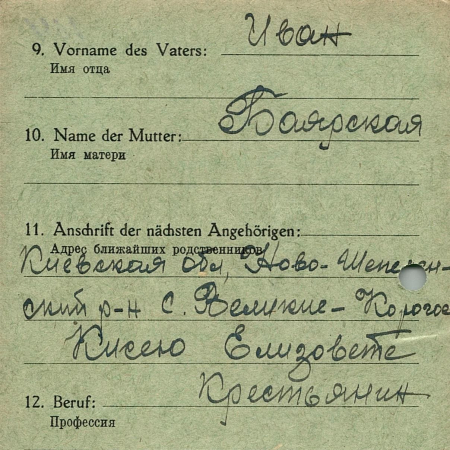 Иван
9. Vorname des Vaters:
Имя отца
Боярская
10. Name der Mutter:
Имя матери
11. Anschrift der nächsten Angehörigen:
Адрес ближайших родственников
Киевская обл, Ново-Шепелен-
ский р-н с. Великие-Корогос
Кисею Елизовете
Крестьянин
12. Beruf:
Профессия